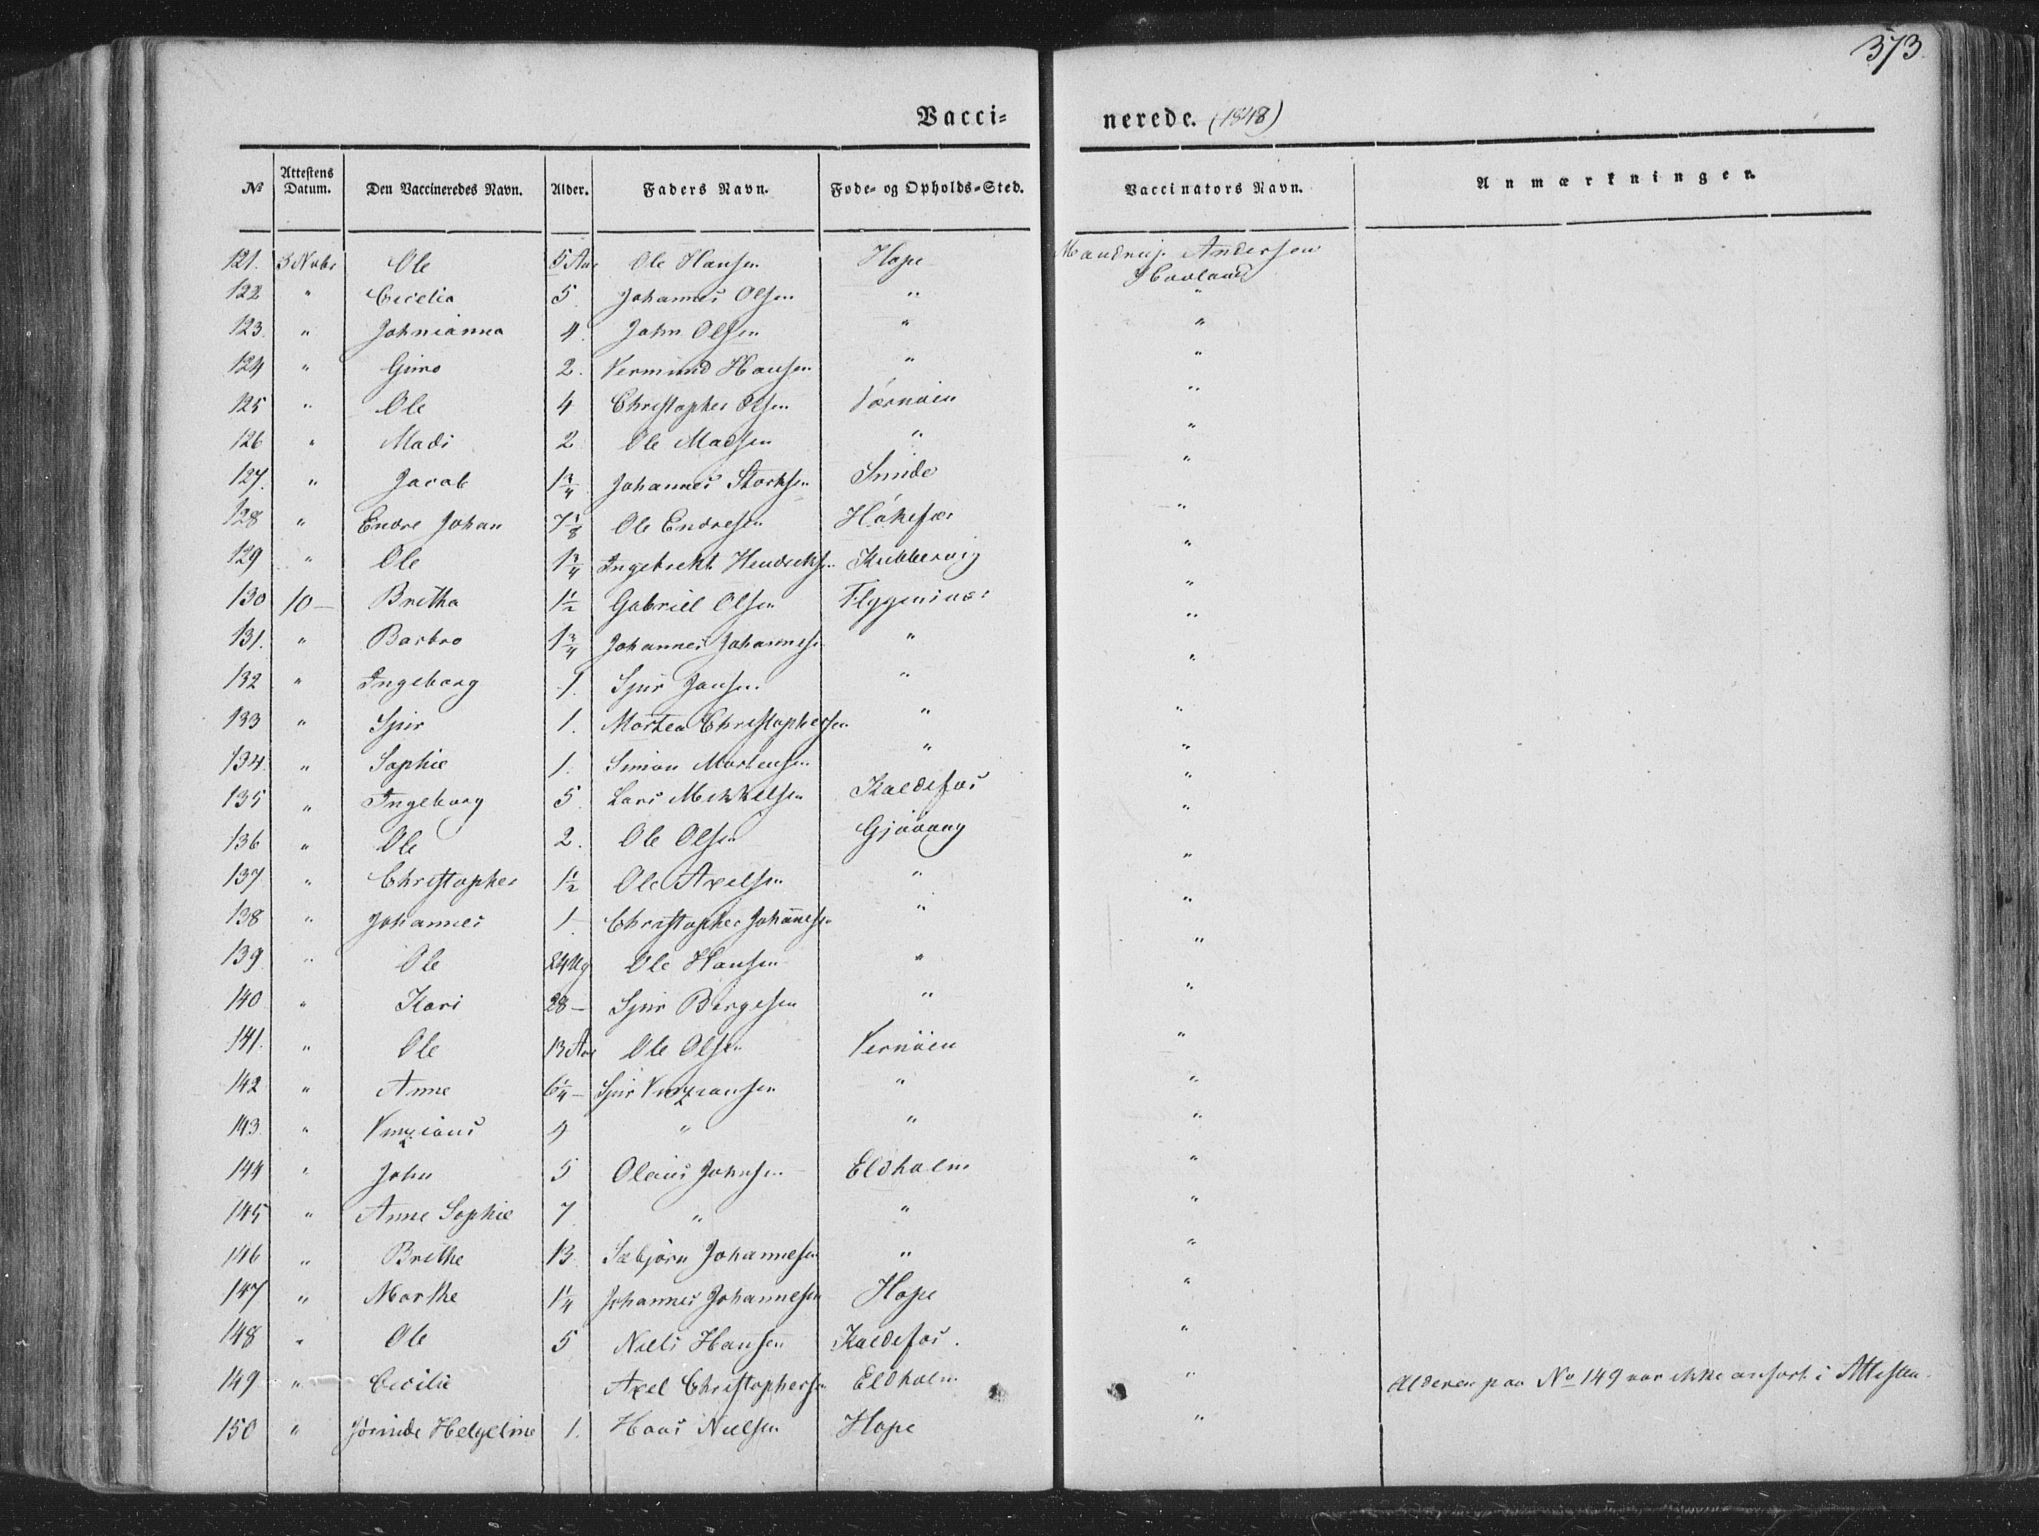 373.
Vacci= nerede. (1848)
No Attestens Datum. Den Vaccineredes Navn. Alder. Faders Navn. Føde- og Opholds-Sted. Vaccinators Navn. Anmærkninger.
121. 3 Nvbr Ole 5 Aar Ole Hansen Hope Andersen
122 " Cecelia 5. Johannes Olsen " "
123. " Johnianna 4. John Olsen " "
124 " Guro 2. Vermund Hansen " "
125 " Ole 4 Christopher Olsen "
126 " Mads 2 Ole Madsen " "
127. " Jacob 1¾ Johannes Storksen Smide "
128 " Endre Johan 7⅛ Ole Endresen "
129 " Ole 1¾ Ingebrekt Hendricksen Kubbervig "
130 10 — Bretha 1½ Gabriel Olsen "
131. " Barbro 1¾ Johannes Johannesen " "
132 " Ingeborg 1. Sjur Jansen " "
133 " Sjur 1. Morten Christophersen " "
134. " Sophie 1. Simon Mortensen " "
135 " Ingeborg 5. Lars Mikkelsen Kaldefos "
136 " Ole 2. Ole Olsen "
137. " Christopher 1½ Ole Axelsen " "
138 " Johannes 1. Christopher Johannesen " "
139 " Ole 24 Ug Ole Hansen " "
140 " Kari 28 — Sjur Børgesen " "
141. " Ole 13 Aar Ole Olsen Vernöen "
142 " Anne 6¼ — Sjur " "
143. " 4 " " "
144 " John 5 Olaus Johnsen Eldholm "
145 " Anne Sophie 7. " " "
146 " Brithe 13. Sæbjørn Johannesen " "
147 " Marthe 1¼ Johannes Johannesen Hope "
148 " Ole 5 Niels Hansen Kaldefos. "
149 " Cecilie Axel Christophersen Eldholm " Alderen paa No 149 var ikke anført i Attesten.
150 " Helgeline 1. Hans Nielsen Hope "